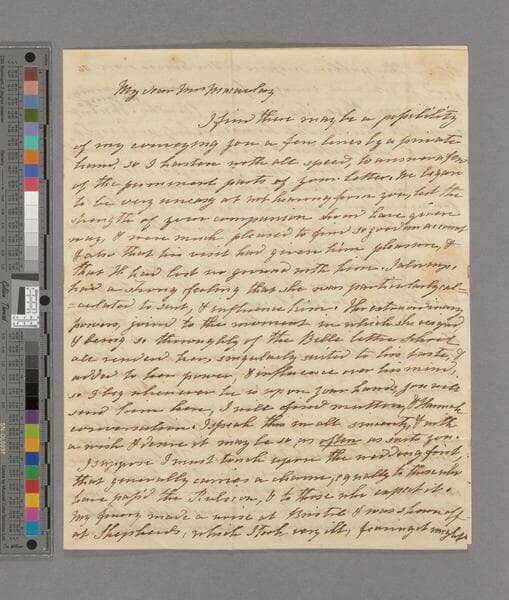 My dear Mrs Macaulay
I find there may be a possibility
of my conveying you a few lines by a private
hand, so I hasten with all speed, to answer a few
of the prominent parts of your letter. We began
to be very uneasy at not hearing from you, lest the
strength of your companion should have given
way, & were much pleased to find so good an account
& also that his visit had given him pleasure, &
that H had lost no ground with him. I always
had a strong feeling that she was particularly cal=
=culated to suit, & influence him. Her extraordinary
powers, joined to the moment in which she
& being so thoroughly of the Belle lettre School
all render her, singularly suited to his taste, &
added to her power & influence over his mind,
so I beg whenever he is upon your hands, you will
send him here, I will find mutton, & Hannah
conversation. I speak this in all sincerity, & with
a wish & desire it may be so, as often as suits you.
I suppose I must touch upon the wedding first
that generally carries a charm, equally to those who
have pass'd the Rubicon, & to those who expect it.
Mr Henry made a at Bristol & was
at Shepherds, which I took very ill, fearing it might